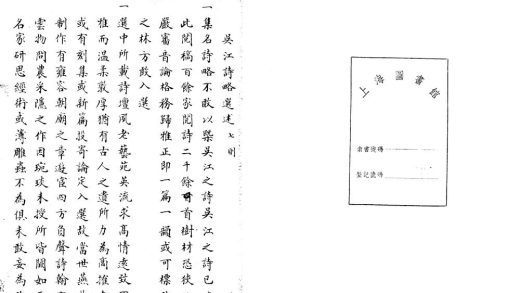 上海圖書館
索書號碼
登記號碼
吳江詩略選述七則
一集名詩略不敢以槩吳江之詩吳江之詩已
此閱稿百餘家閱詩二千餘首樹材恐狹
嚴審音論格務歸雅正即一篇一韻或可標
之林方敢入選
一選中所載詩壇風老藝苑英流求高情遠致
惟而溫柔敦厚猶有古人之遺所力為商搉
或有刻集或新篇投寄論定入選故當世燕
制作有雍容朝廟之章遊宦四方負聲詩翰
雲物問農采隱之作因琬琰未授所皆闕如
名家研思經術或薄雕蟲不為俱未敢妄為